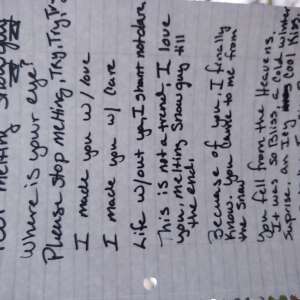 melting Snow guy
Where is your eye?
Please stop melting, Try, Try, Try
I made you w/ love
I made you w/ Care
Life w/out you, I shant not dare
This is not a trend, I love
you, melting Snow guy till
the end.
Because of you, I finally
Know. You came to me from
the snow
You fell from the Heavens.
It was so Bliss, a Cold winter
Suprise, an Icy Cool Kiss